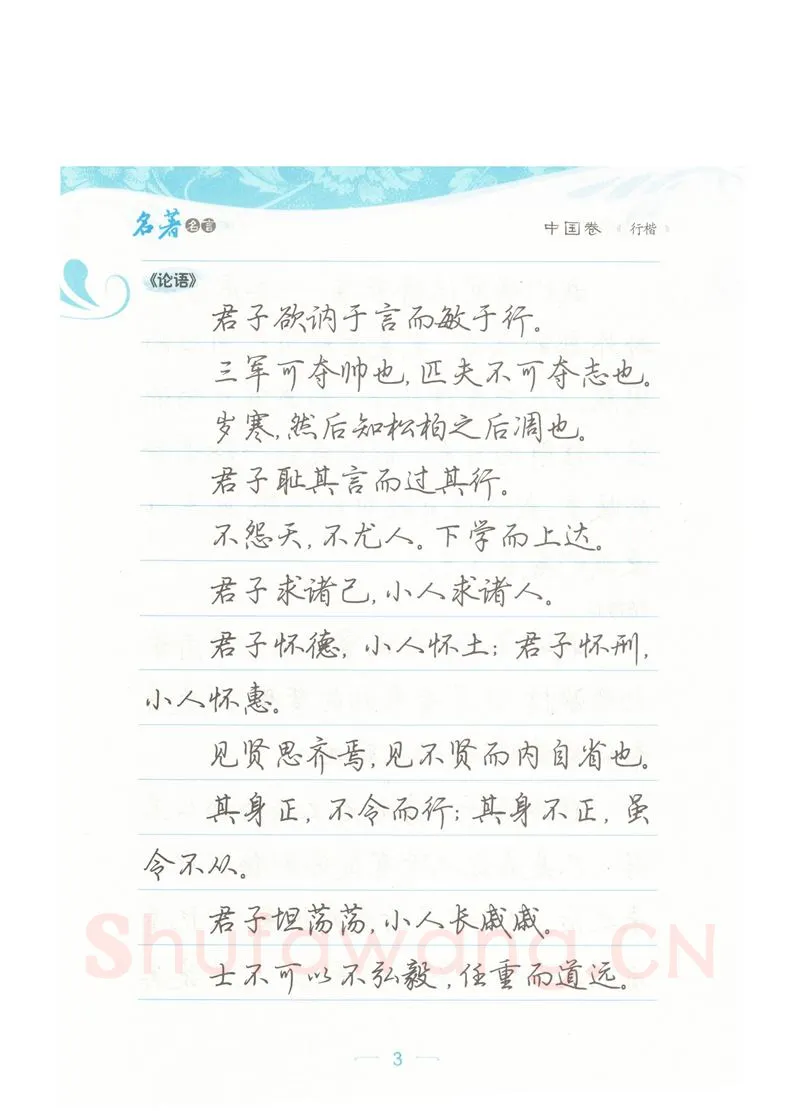 名著名言
中国卷 行楷
《论语》
君子欲讷于言而敏于行。
三军可夺帅也，匹夫不可夺志也。
岁寒，然后知松柏之后凋也。
君子耻其言而过其行。
不怨天，不尤人。下学而上达。
君子求诸己，小人求诸人。
君子怀德，小人怀土；君子怀刑，
小人怀惠。
见贤思齐焉，见不贤而内自省也。
其身正，不令而行；其身不正，虽
令不从。
君子坦荡荡，小人长戚戚。
Shufawang.CN
士不可以不弘毅，任重而道远。
3